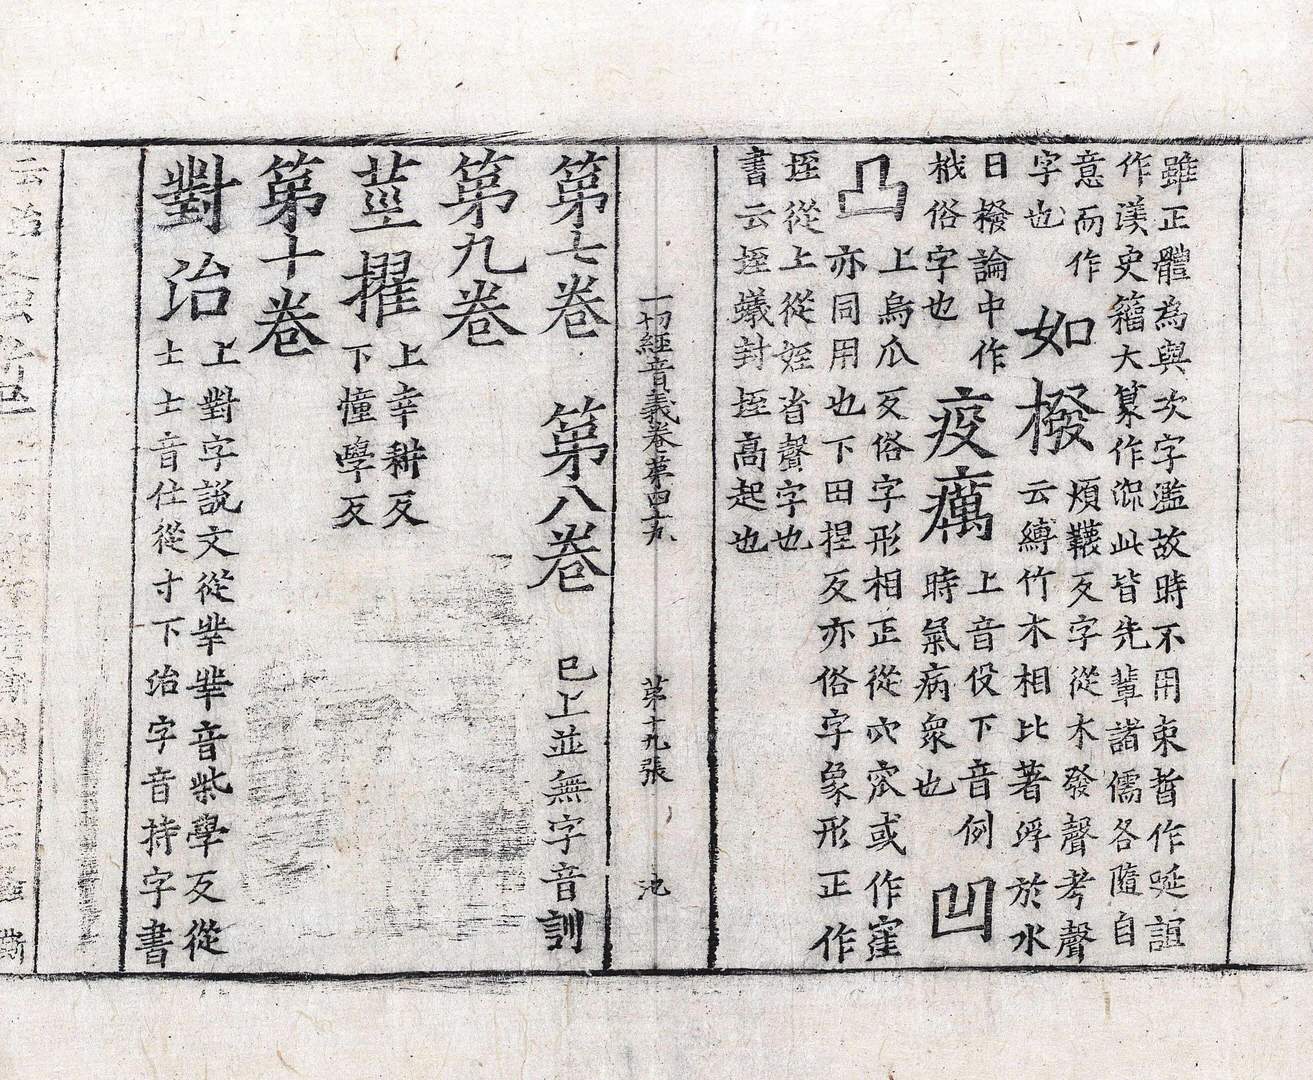 雖正體為與次字濫故時不用束晳作唌誼
作漢史籒大篆作㳄此皆先輩諸儒各隨自
意而作
字也
如橃
煩韈反字從木發聲考聲
云縛竹木相比著浮於水
曰橃論中作
栰俗字也
疫癘
上音役下音例
時氣病衆也
凹
凸
上烏瓜反俗字形相正從穴窊或作窪
亦同用也下田捏反亦俗字象形正作
垤從土從姪省聲字也
書云垤蟻封垤高起也
一切經音義卷第四十九 第十九張
第七卷 第八卷 已上並無字音訓
第九卷
莖擢
上幸耕反
下憧學反
第十卷
對治
上對字說文從丵丵音柴學反從
士士音仕從寸下治字音持字書